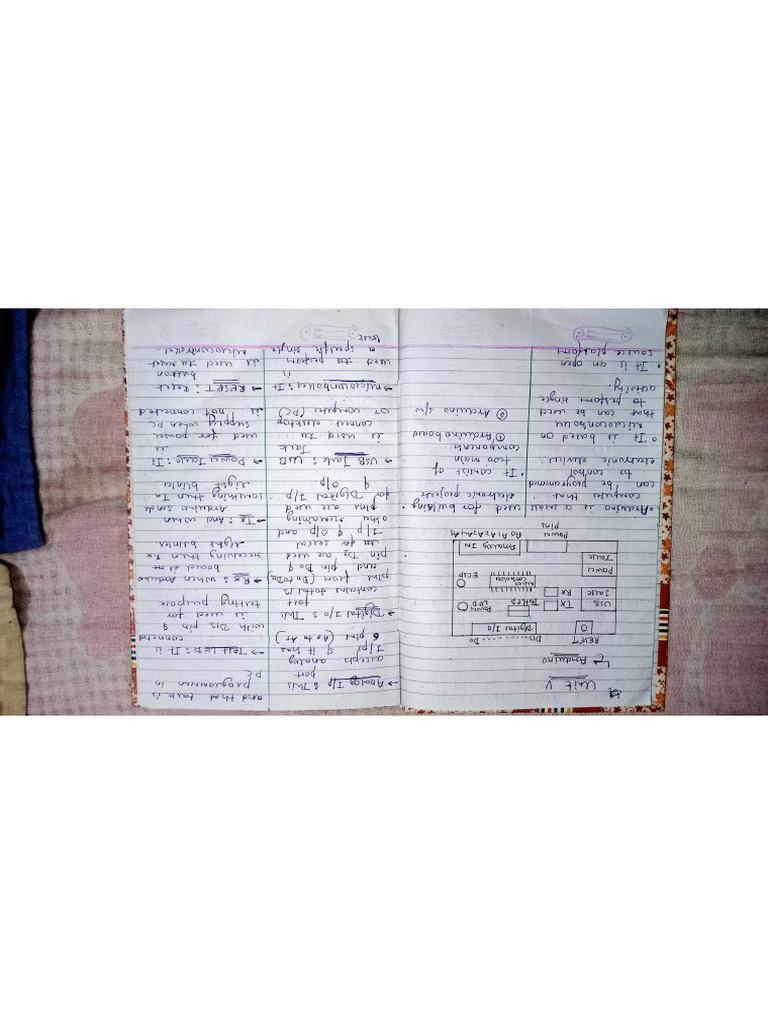 Unit V
→ Arduino
RESET
D13 ...... D0
O
Digital I/O
USB
Jack
TX
RX
Test LED
Power
LED
Power
Jack
micro
controller
Analog IN
Power
Pins
A0 A1 A2 A3 A4 A5
• Arduino is a small
computer that
can be programed
to control
electronic device.
• It is based on
microcontroller
that can be used
to perform single
activity.
• It is an open
source platform
used for building
electronic projects
• It consist of
two main
components
① Arduino board
② Arduino s/w
→ Analog I/p : This
port
accepts analog
I/ps & it has
6 pins (A0 to A5)
→ Digital I/O : This
port
contains total 13
pins from (D0 to D13)
and pin D0 &
pin D1 are used
for serial
I/p & O/p and
other remaining
pins are used
for Digital I/p
& O/p
→ USB Jack : USB
Jack
is used to
connect desktop
or computer (PC)
→ Microcontroller : It
is
used to perform
a specific single
task
and that task is
programmed in
PC
→ Test LED : It is
connected
with D13 pin &
is used for
testing purpose
→ Rx : when Arduino
board is
receiving then Rx
light blinks
→ Tx : And when
Arduino sends
something then Tx
light blinks
→ Power Jack : It
is
used for power
supply when PC
is not connected
→ RESET : Reset
button
is used to reset
Microcontroller.